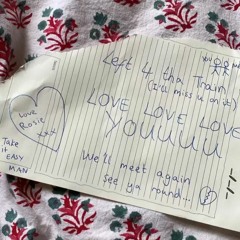 Left 4 tha Train
(I'll miss u on it)
LOVE LOVE LOVE
YOUUUU
We'll meet again
see ya round...
Love
Rosie
xxx
Take
it EASY
MAN